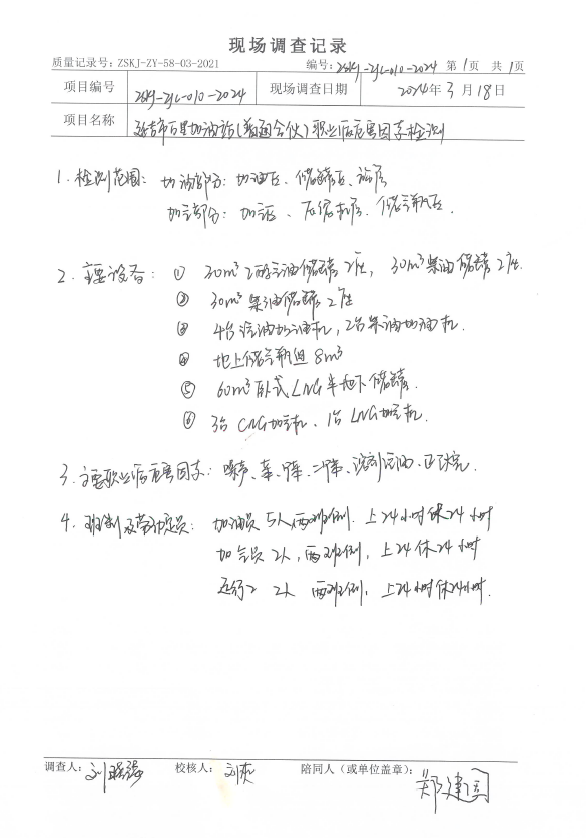 现场调查记录
质量记录号: ZSKJ-ZY-58-03-2021 编号: ZSKJ-ZJC-010-2024 第1页 共1页
项目编号 ZSKJ-ZJC-010-2024 现场调查日期 2024年3月18日
项目名称 加油站(普通合伙)职业病危害因素检测
1. 检测范围: 加油部分: 加油区、储罐区、站房
加气部分: 加气区、压缩机房、储气瓶区.
2. 主要设备: ① 30m³ 汽油储罐2座, 30m³柴油储罐2座.
② 30m³柴油储罐2座
③ 4台汽油加油机, 2台柴油加油机.
④ 地上储气瓶组 8m³
⑤ 60m³卧式LNG半地下储罐.
⑥ 3台CNG加气机、1台LNG加气机.
3. 主要职业病危害因素: 噪声、苯、甲苯、二甲苯、溶剂汽油、正己烷.
4. 班制及劳动定员: 加油员 5人 两班制. 上24小时休24小时
加气员 2人, 两班制, 上24休24小时
运行工 2人 两班制, 上24小时休24小时.
调查人: 校核人: 刘爽 陪同人(或单位盖章): 郑建国